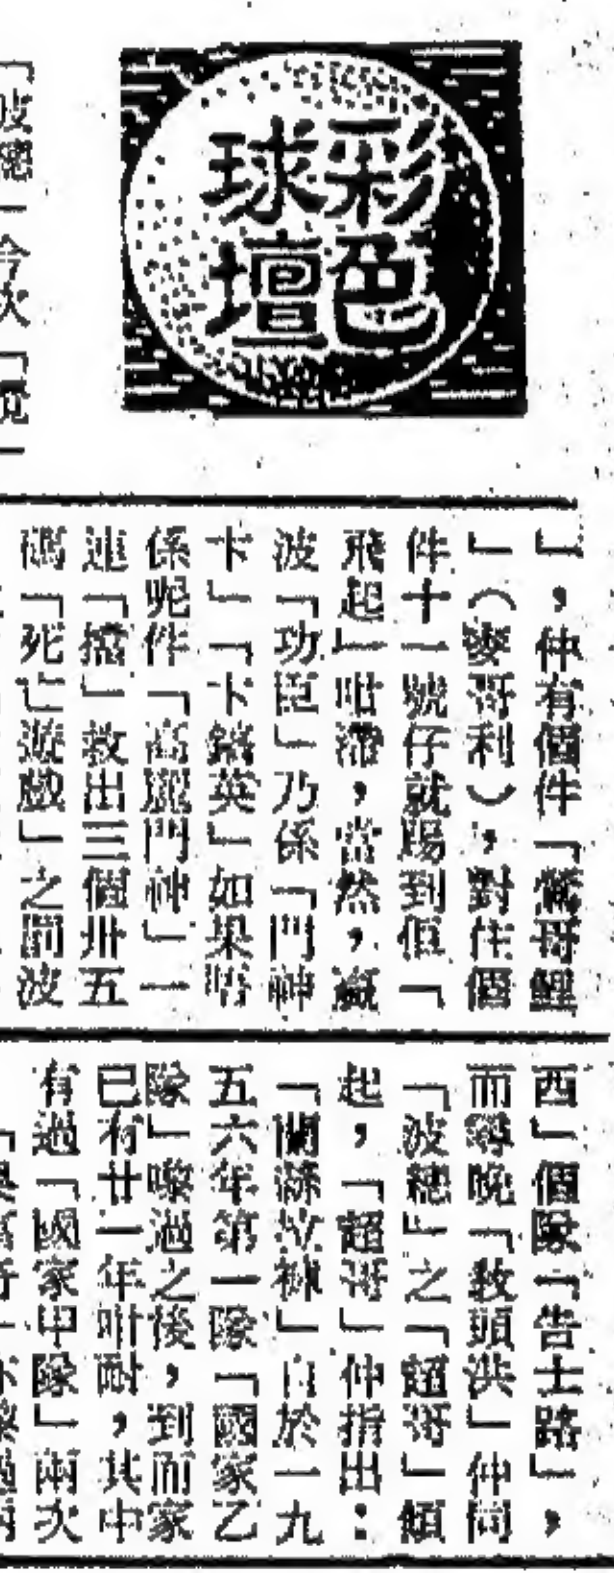 彩色
球壇
「波牕一今次「
」,仲有個件「鶯哥鯉
」(麥哥利),對住個
件十一號仔就踢到佢「
飛起」咁滯,當然,贏
波「功臣」乃係「門神
卡」「卡鏘英」如果唔
係呢件「高龍門神」一
連「擋」救出三個卅五
碼「死亡遊戲」之罰波
西」個隊「告士路」,
而尋晚「教頭洪」仲同
「波牕」之「超哥」傾
起,「超哥」仲指出:
「蘭 褲」自於一九
五六年第一隊「國家乙
隊」嚟過之後,到而家
已有廿一年咁耐,其中
有過「國家甲隊」兩次